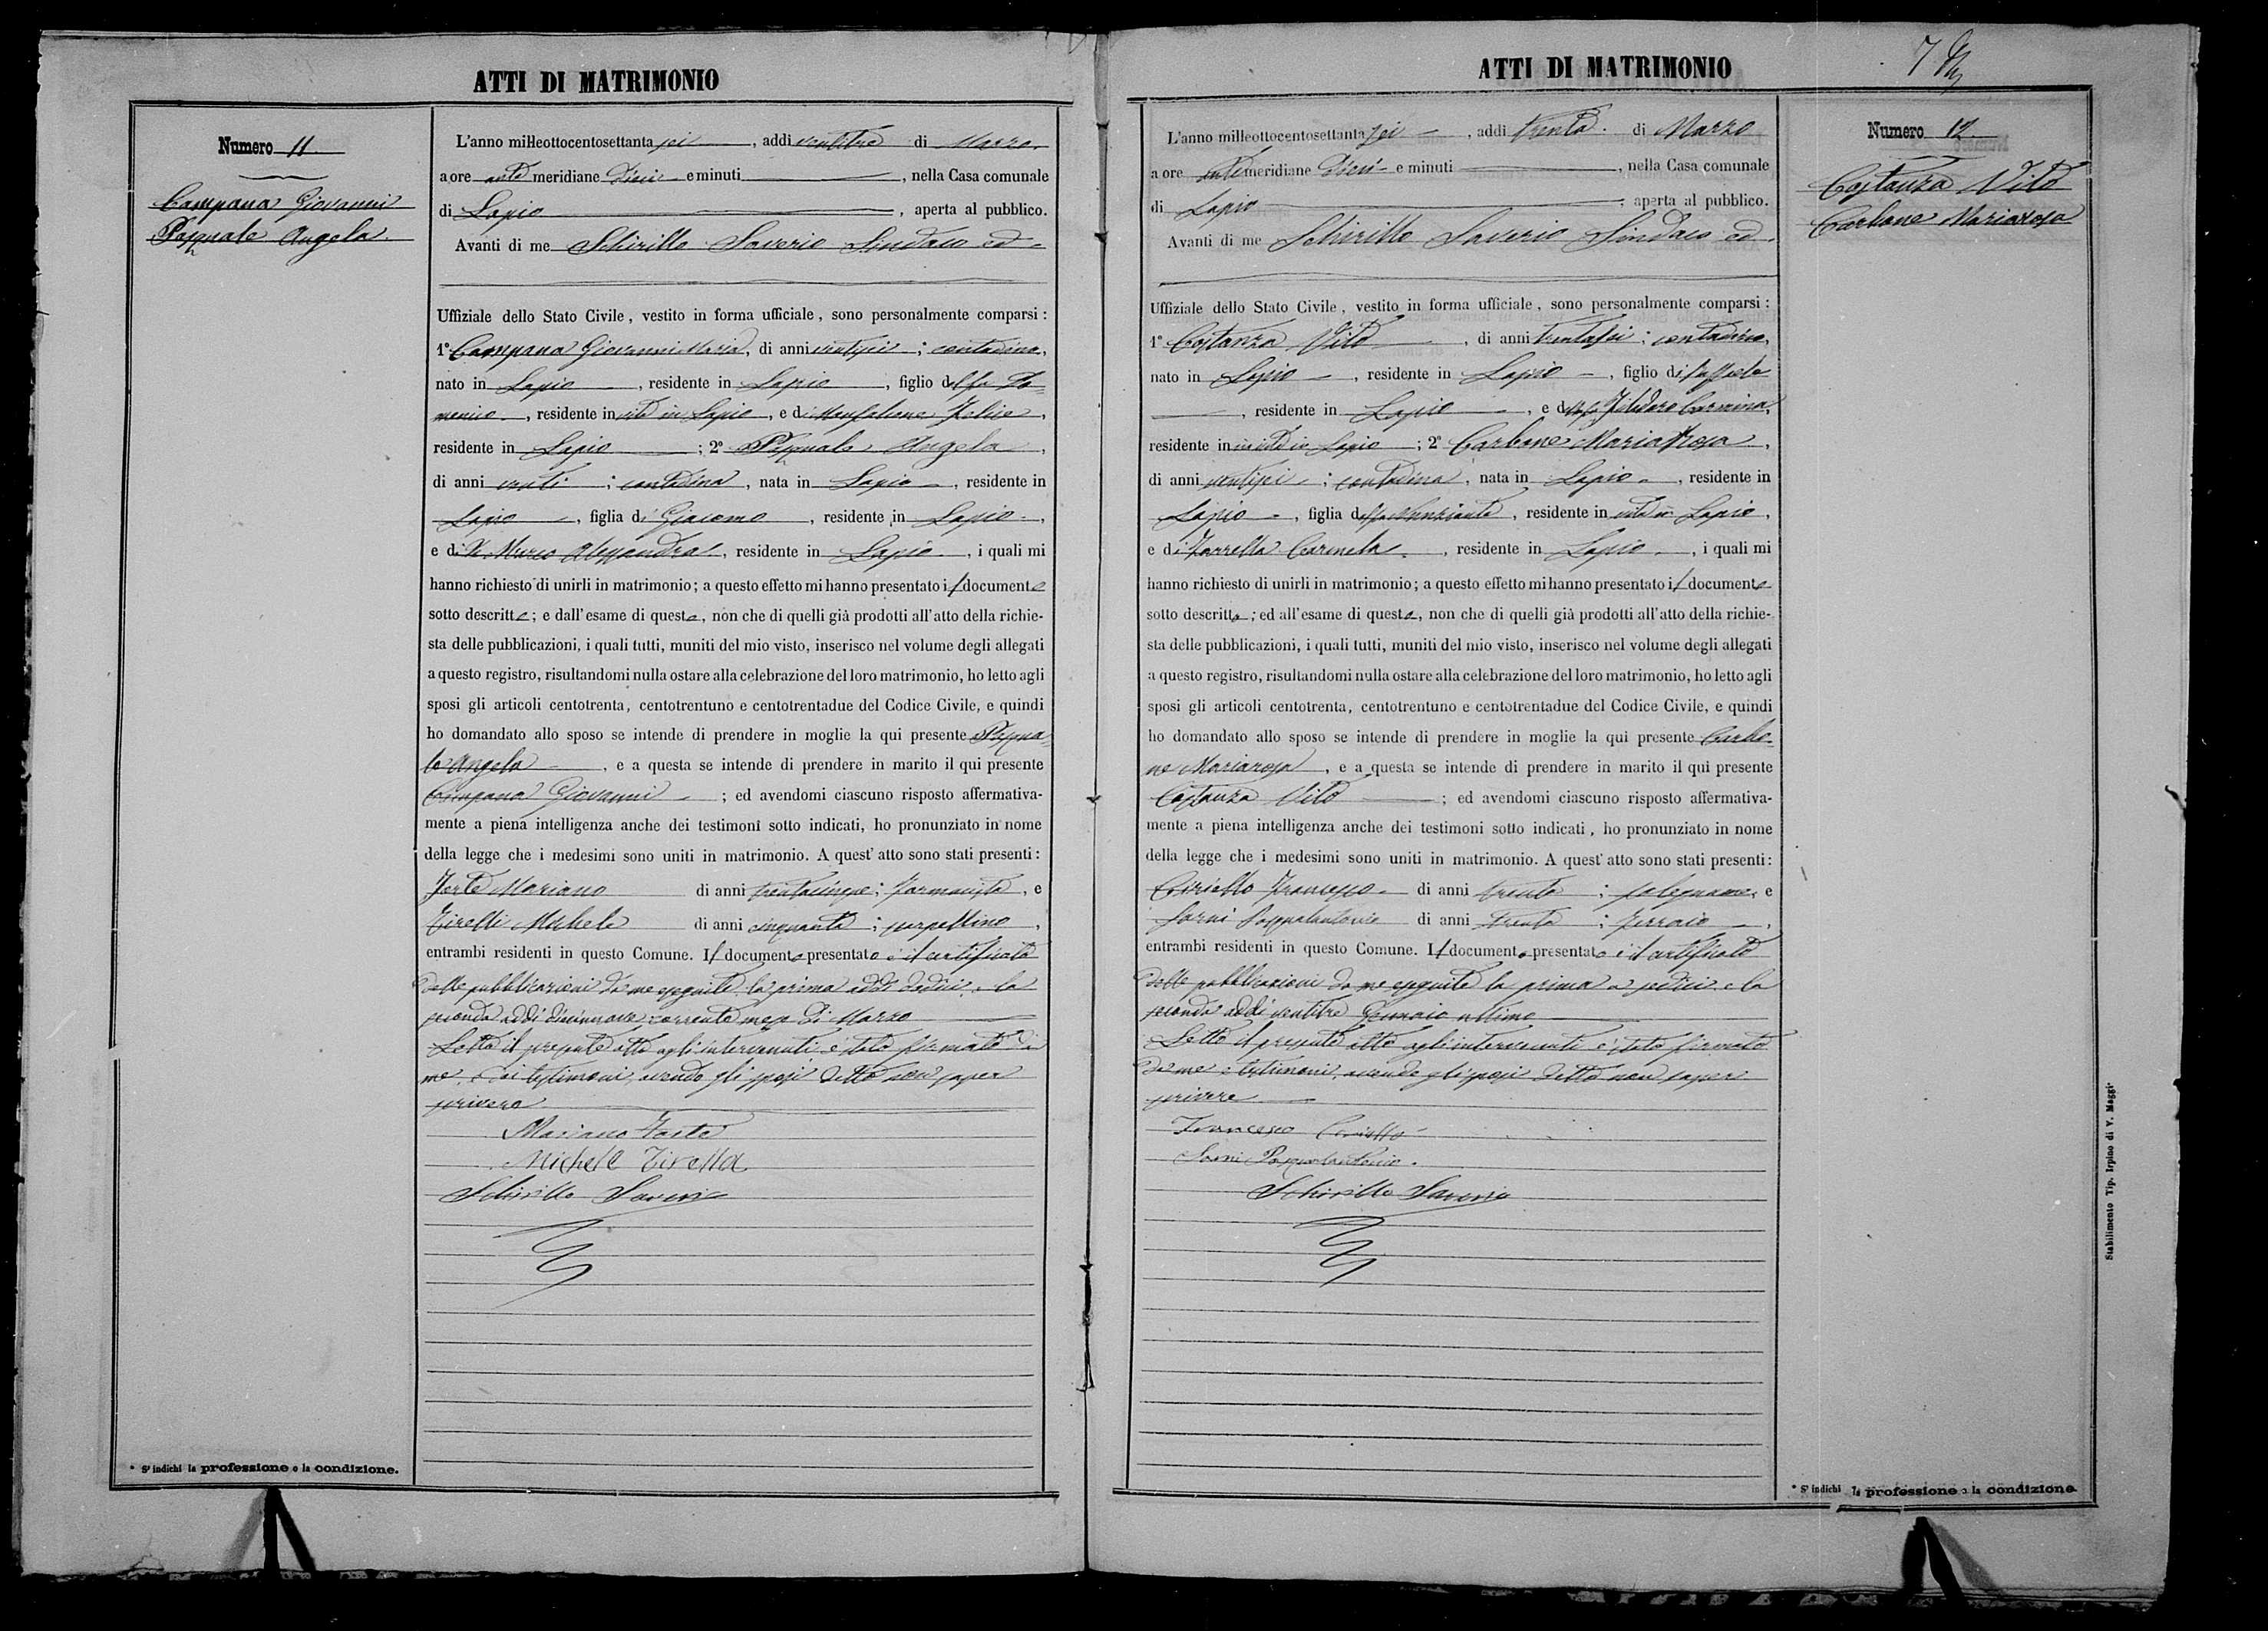 ATTI DI MATRIMONIO
Numero 11.
Campana Giovanni
Pasquale Angela.
L'anno milleottocentosettanta sei, addi ventitre di Marzo
a ore ante meridiane dieci e minuti, nella Casa comunale
di Lapio, aperta al pubblico.
Avanti di me Schirillo Saverio Sindaco ed
Uffiziale dello Stato Civile, vestito in forma ufficiale, sono personalmente comparsi:
1° Campana Giovanni Maria, di anni ventisei; contadino,
nato in Lapio, residente in Lapio, figlio del fu Do-
menico, residente in vita in Lapio, e di Felice,
residente in Lapio; 2° Pasquale Angela,
di anni venti; contadina, nata in Lapio, residente in
Lapio, figlia di Giacomo, residente in Lapio,
e di De Marco Alessandra, residente in Lapio, i quali mi
hanno richiesto di unirli in matrimonio; a questo effetto mi hanno presentato il documento
sotto descritto; e dall'esame di questo, non che di quelli già prodotti all'atto della richie-
sta delle pubblicazioni, i quali tutti, muniti del mio visto, inserisco nel volume degli allegati
a questo registro, risultandomi nulla ostare alla celebrazione del loro matrimonio, ho letto agli
sposi gli articoli centotrenta, centotrentuno e centotrentadue del Codice Civile, e quindi
ho domandato allo sposo se intende di prendere in moglie la qui presente Pasqua-
le Angela, e a questa se intende di prendere in marito il qui presente
Campana Giovanni; ed avendomi ciascuno risposto affermativa-
mente a piena intelligenza anche dei testimoni sotto indicati, ho pronunziato in nome
della legge che i medesimi sono uniti in matrimonio. A quest' atto sono stati presenti:
Forte Mariano di anni trentacinque; farmacista, e
Tirelli Michele di anni cinquanta; scarpellino,
entrambi residenti in questo Comune. Il documento presentato è il certificato
delle pubblicazioni da me eseguite la prima addì dodici e la
seconda addì diciannove corrente mese di Marzo
Letto il presente atto agli intervenuti è stato firmato da
me e dai testimoni, avendo gli sposi detto non saper
scrivere
Mariano Forte
Michele Tirella
Schirillo Saverio
* S' indichi la professione o la condizione.
ATTI DI MATRIMONIO
7
Numero 12.
Costanza Vito
Carbone Mariarosa
L'anno milleottocentosettanta sei, addi trenta di Marzo
a ore antimeridiane dieci e minuti, nella Casa comunale
di Lapio; aperta al pubblico.
Avanti di me Schirillo Saverio Sindaco ed
Uffiziale dello Stato Civile, vestito in forma ufficiale, sono personalmente comparsi:
1° Costanza Vito, di anni trentasei; contadino,
nato in Lapio, residente in Lapio, figlio di Raffaele
, residente in Lapio, e della fu Carmina,
residente in vita in Lapio; 2° Carbone Mariarosa,
di anni ventisei; contadina, nata in Lapio, residente in
Lapio, figlia del fu Nunziante, residente in vita in Lapio,
e di Zarrella Carmela, residente in Lapio, i quali mi
hanno richiesto di unirli in matrimonio; a questo effetto mi hanno presentato il documento
sotto descritto; ed all'esame di questo, non che di quelli già prodotti all'atto della richie-
sta delle pubblicazioni, i quali tutti, muniti del mio visto, inserisco nel volume degli allegati
a questo registro, risultandomi nulla ostare alla celebrazione del loro matrimonio, ho letto agli
sposi gli articoli centotrenta, centotrentuno e centotrentadue del Codice Civile, e quindi
ho domandato allo sposo se intende di prendere in moglie la qui presente Carbo-
ne Mariarosa, e a questa se intende di prendere in marito il qui presente
Costanza Vito; ed avendomi ciascuno risposto affermativa-
mente a piena intelligenza anche dei testimoni sotto indicati, ho pronunziato in nome
della legge che i medesimi sono uniti in matrimonio. A quest' atto sono stati presenti:
Ciriello Francesco di anni trenta; falegname, e
Sarni Pasqualantonio di anni trenta; ferraio,
entrambi residenti in questo Comune. Il documento presentato è il certificato
delle pubblicazioni da me eseguite la prima a sedici e la
seconda addì ventitre Gennaio ultimo
Letto il presente atto agli intervenuti è stato firmato
da me e testimoni, avendo gli sposi detto non sapere
scrivere
Francesco Ciriello
Sarni Pasqualantonio.
Schirillo Saverio
* S' indichi la professione o la condizione.
Stabilimento Tip. Irpino di V. Maggi